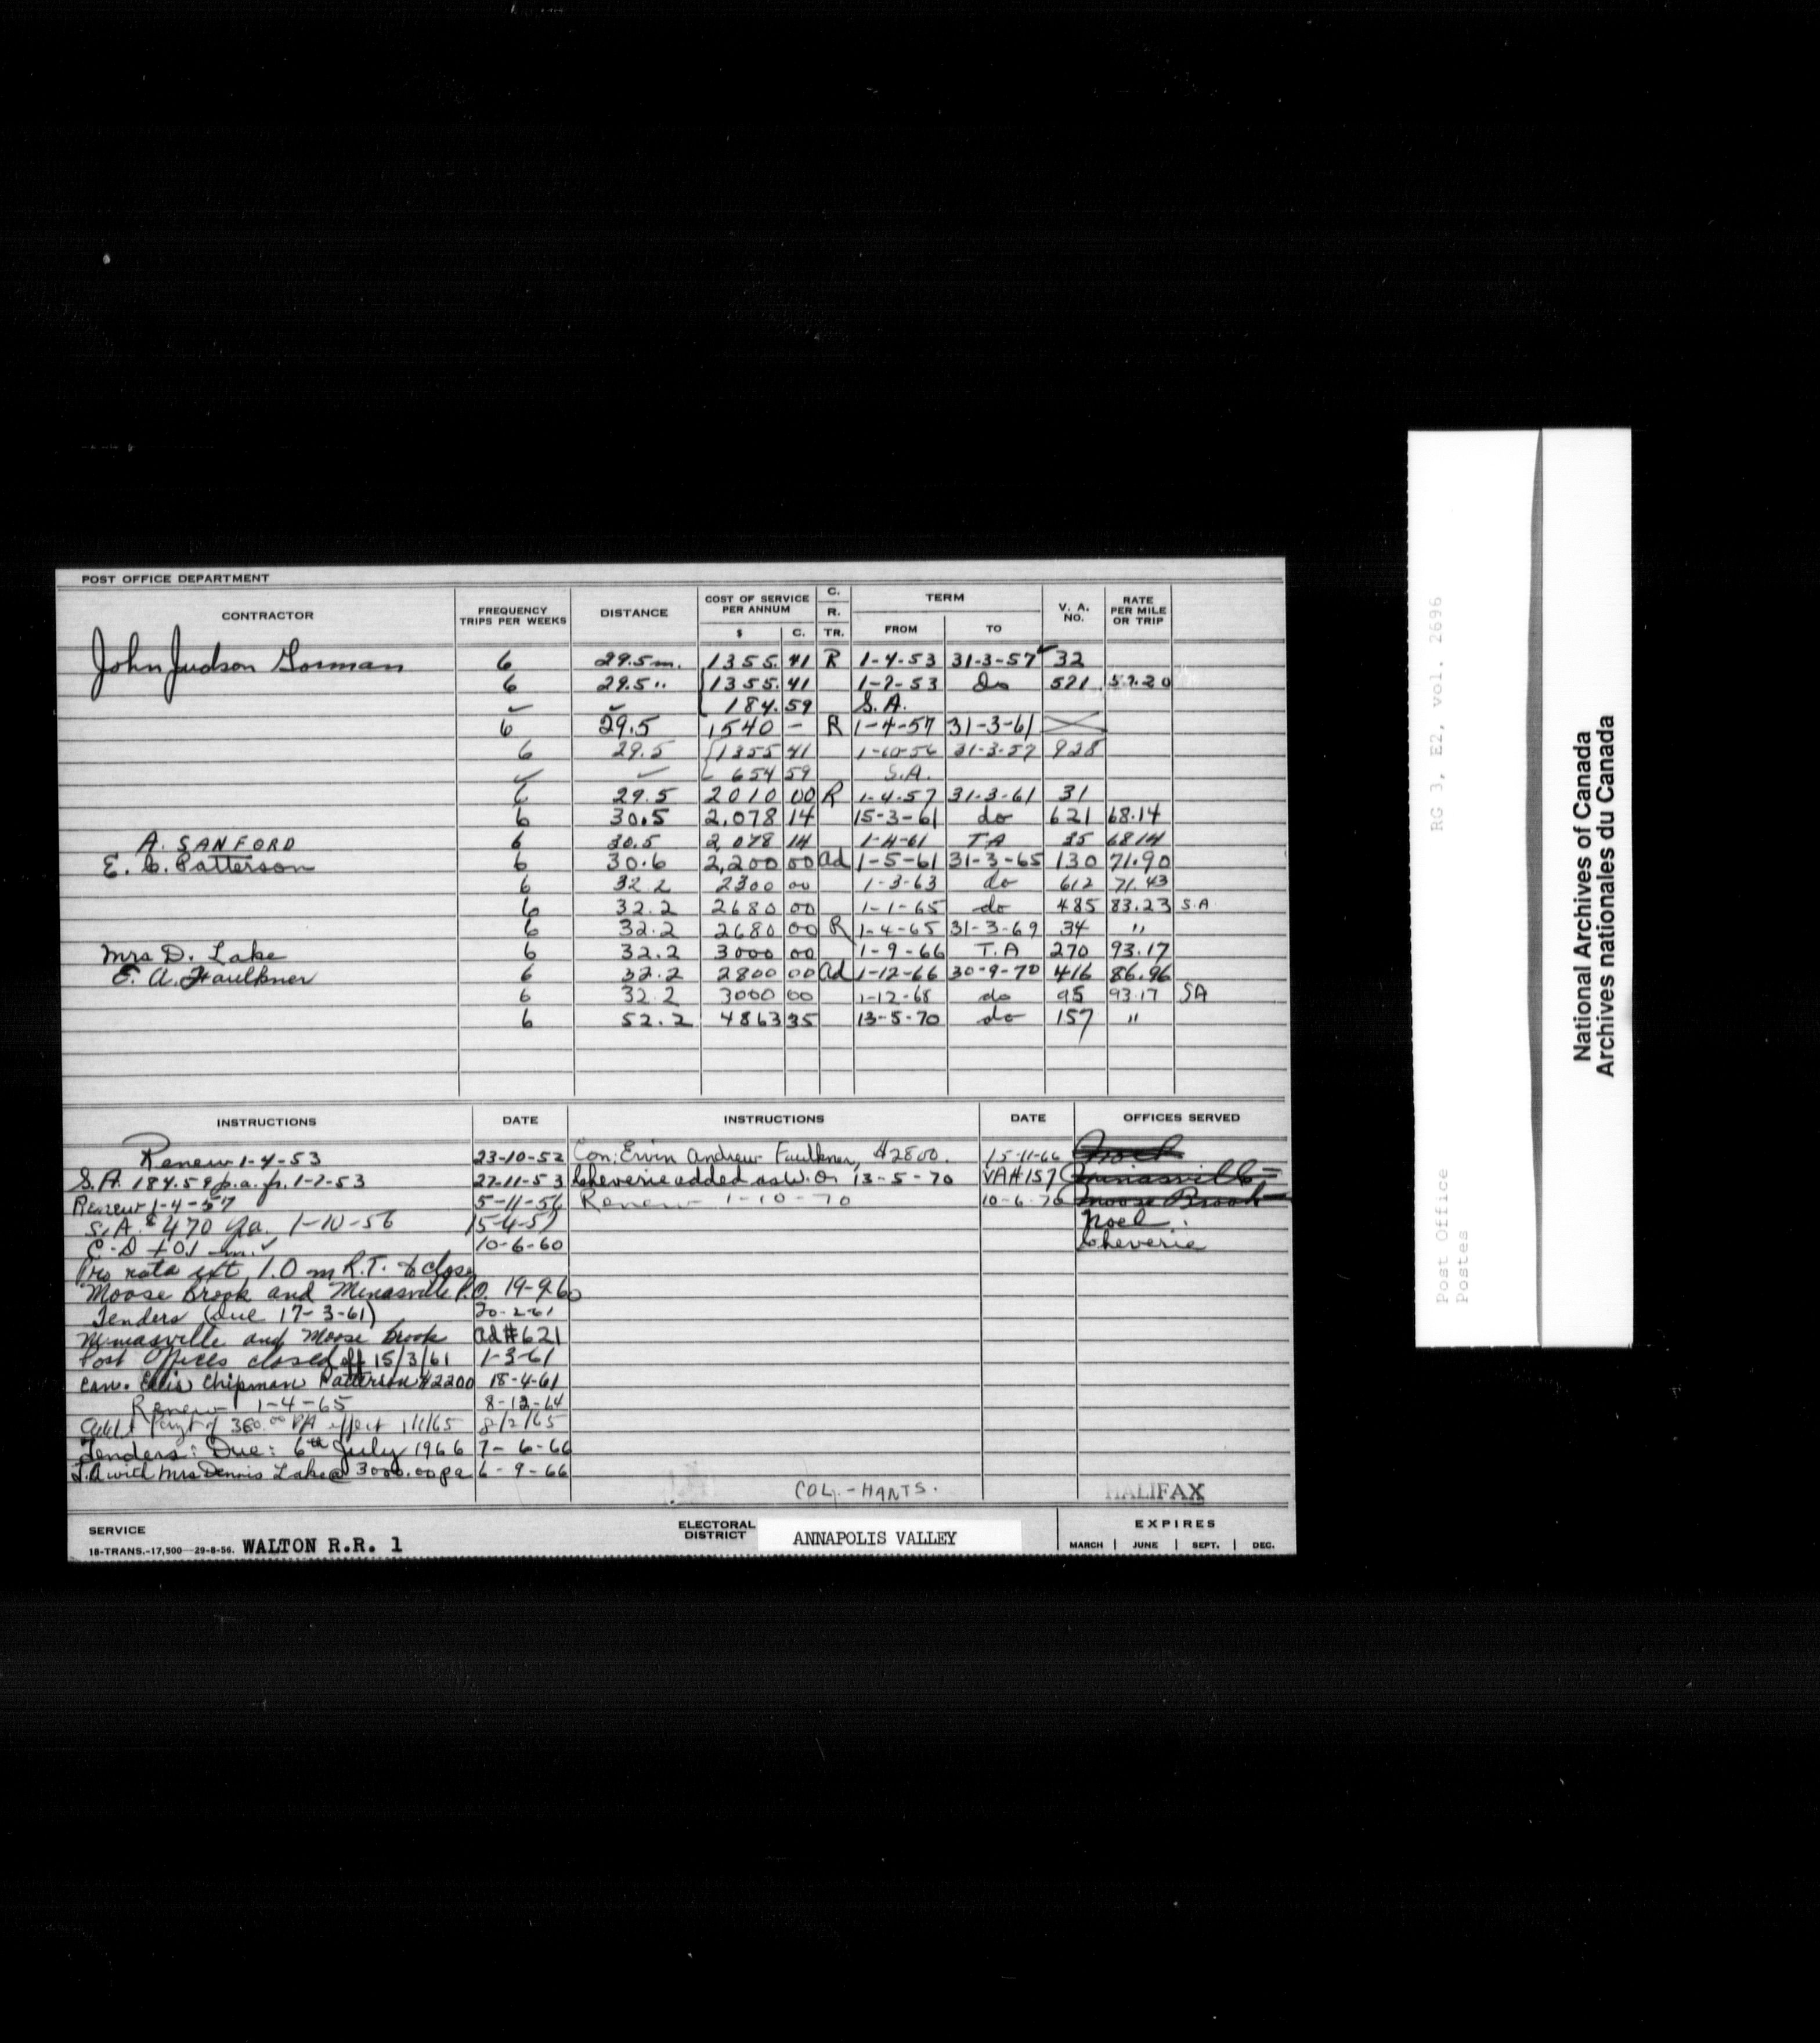 POST OFFICE DEPARTMENT
CONTRACTOR FREQUENCY TRIPS PER WEEKS DISTANCE COST OF SERVICE PER ANNUM $ C. C. R. TR. TERM FROM TO V. A. NO. RATE PER MILE OR TRIP
John Judson Gorman 6 29.5 m. 1355.41 R 1-4-53 31-3-57 32
6 29.5 " 1355.41 1-7-53 do 521 52.20
✓ ✓ 184.59 S.A.
6 29.5 1540 - R 1-4-57 31-3-61
6 29.5 1355 41 1-10-56 31-3-57 928
✓ ✓ 654 59 S.A.
6 29.5 2010 00 R 1-4-57 31-3-61 31
6 30.5 2,078 14 15-3-61 do 621 68.14
A. SANFORD 6 30.5 2,078 14 1-4-61 T A 35 68 14
E. C. Patterson 6 30.6 2,200 00 ad 1-5-61 31-3-65 130 71.90
6 32.2 2300 00 1-3-63 do 612 71.43
6 32.2 2680 00 1-1-65 do 485 83.23 S.A.
6 32.2 2680 00 R 1-4-65 31-3-69 34 "
Mrs D. Lake 6 32.2 3000 00 1-9-66 T.A 270 93.17
E. A. Faulkner 6 32.2 2800 00 ad 1-12-66 30-9-70 416 86.96
6 32.2 3000 00 1-12-68 do 95 93.17 SA
6 52.2 4863 35 13-5-70 do 157 "
INSTRUCTIONS DATE INSTRUCTIONS DATE OFFICES SERVED
Renew 1-4-53 23-10-52 Con: Ervin Andrew Faulkner, $2800. 15-11-66 Noel
S.A. 184.59 p.a. fr. 1-7-53 27-11-53 Cheverie added as W.O. 13-5-70 VA#157 Minasville
Renew 1-4-57 5-11-56 Renew 1-10-70 10-6-70 Moose Brook
S.A. $470 pa. 1-10-56 15-4-57 Noel
C-D + 0.1 m. ✓ 10-6-60 Cheverie
Pro rata ext 1.0 m R.T. to close
Moose Brook and Minasville P.O. 19-9-60
Tenders (due 17-3-61) 20-2-61
Minasville and Moose Brook ad#621
Post Offices closed eff 15/3/61 1-3-61
Con. Ellis Chipman Patterson $2200 18-4-61
Renew 1-4-65 8-12-64
Addl Paymt of 380.00 PA effect 1/1/65 8/2/65
Tenders: Due: 6th July 1966 7-6-66
T.A with Mrs Dennis Lake @ 3000.00 pa 6-9-66
COL. - HANTS. HALIFAX
SERVICE
18-TRANS.-17,500-29-8-56. WALTON R.R. 1 ELECTORAL DISTRICT ANNAPOLIS VALLEY EXPIRES
MARCH | JUNE | SEPT. | DEC.
RG 3, E2, vol. 2696
Post Office
Postes
National Archives of Canada
Archives nationales du Canada